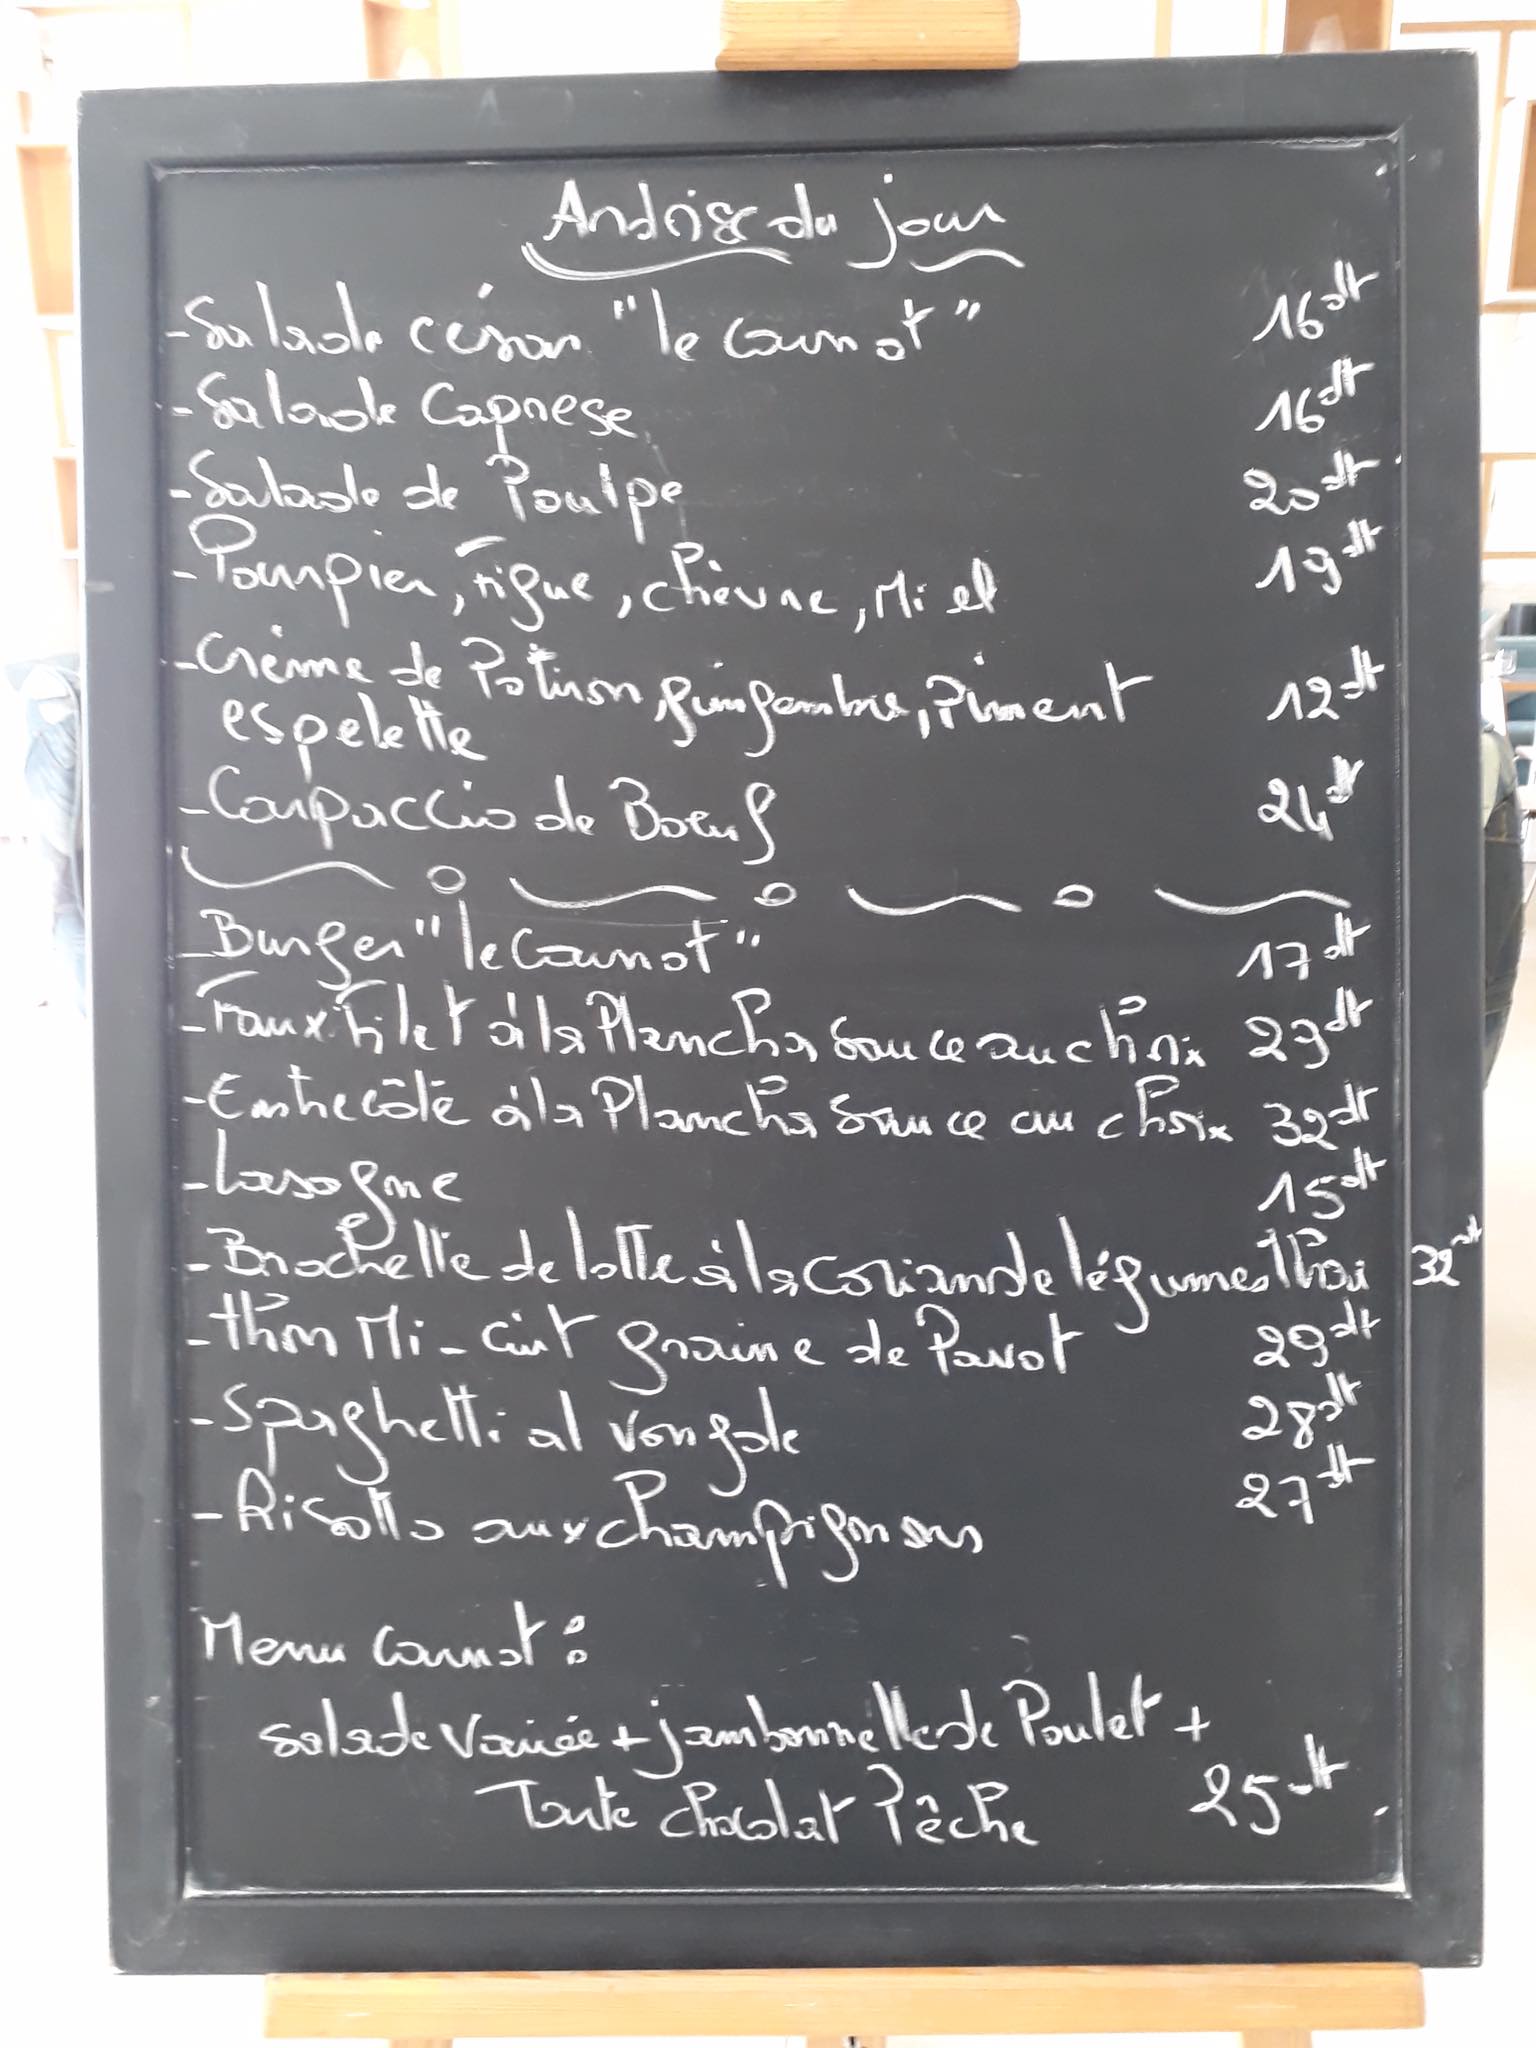 Ardoise du jour
- Salade césar "le Carnot" 16dt
- Salade Caprese 16dt
- Salade de Poulpe 20dt
- Pourpier, Figue, chèvre, Miel 19dt
- Crème de Potiron, gingembre, Piment 12dt
espelette
- Carpaccio de Boeuf 24dt
- Burger "le Carnot" 17dt
- Faux Filet à la Plancha Sauce au choix 29dt
- Entrecôte à la Plancha Sauce au choix 32dt
- Lasagne 15dt
- Brochette de lotte à la Coriande légumes Thai 32dt
- thon Mi-cuit graine de Pavot 29dt
- Spaghetti al Vongole 28dt
- Risotto aux champignons 27dt
Menu Carnot :
salade Variée + jambonnette de Poulet +
Tarte chocolat Pêche 25dt